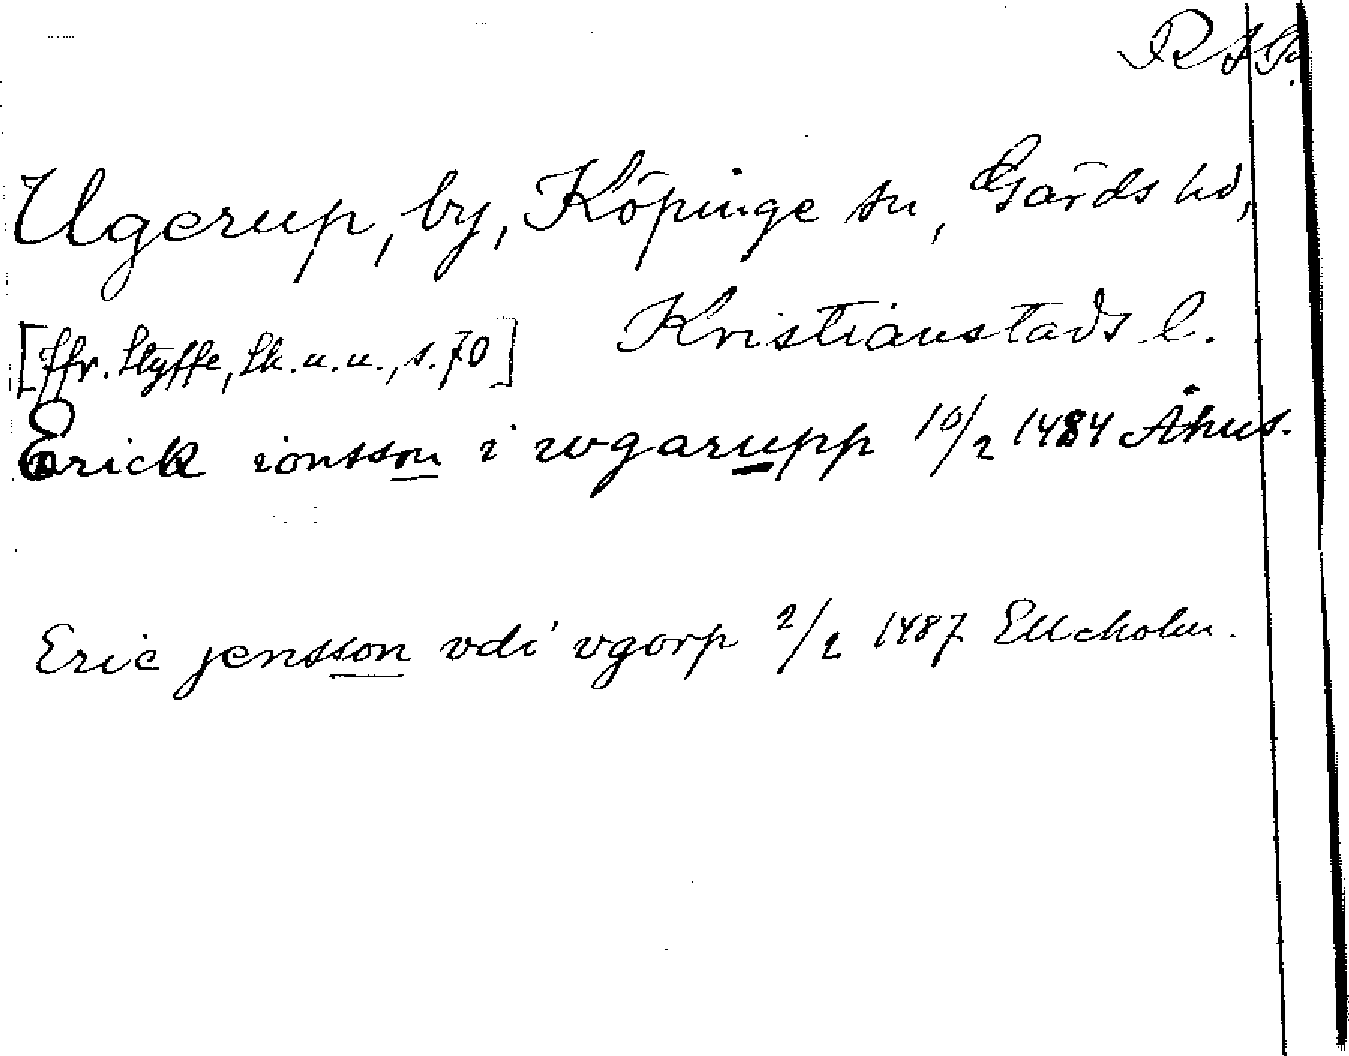 Ugerup, by, Köpinge sn, Gärds hd,
[Jfr. Styffe, Sk. u. u., s. 70] Kristianstads l.
Erick ionsson i wgarupp 10/2 1484 Åhus.
Eric jensson vdi vgorp 2/2 1487 Ellcholm.